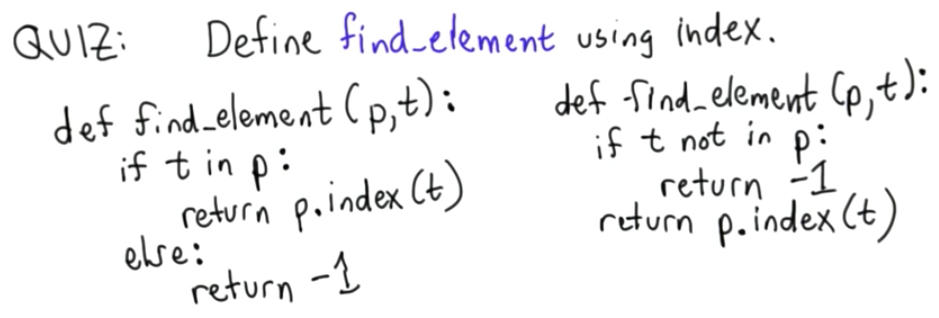 QUIZ: Define find_element using index.
def find_element (p,t):
if t in p:
return p.index(t)
else:
return -1
def find_element (p,t):
if t not in p:
return -1
return p.index(t)